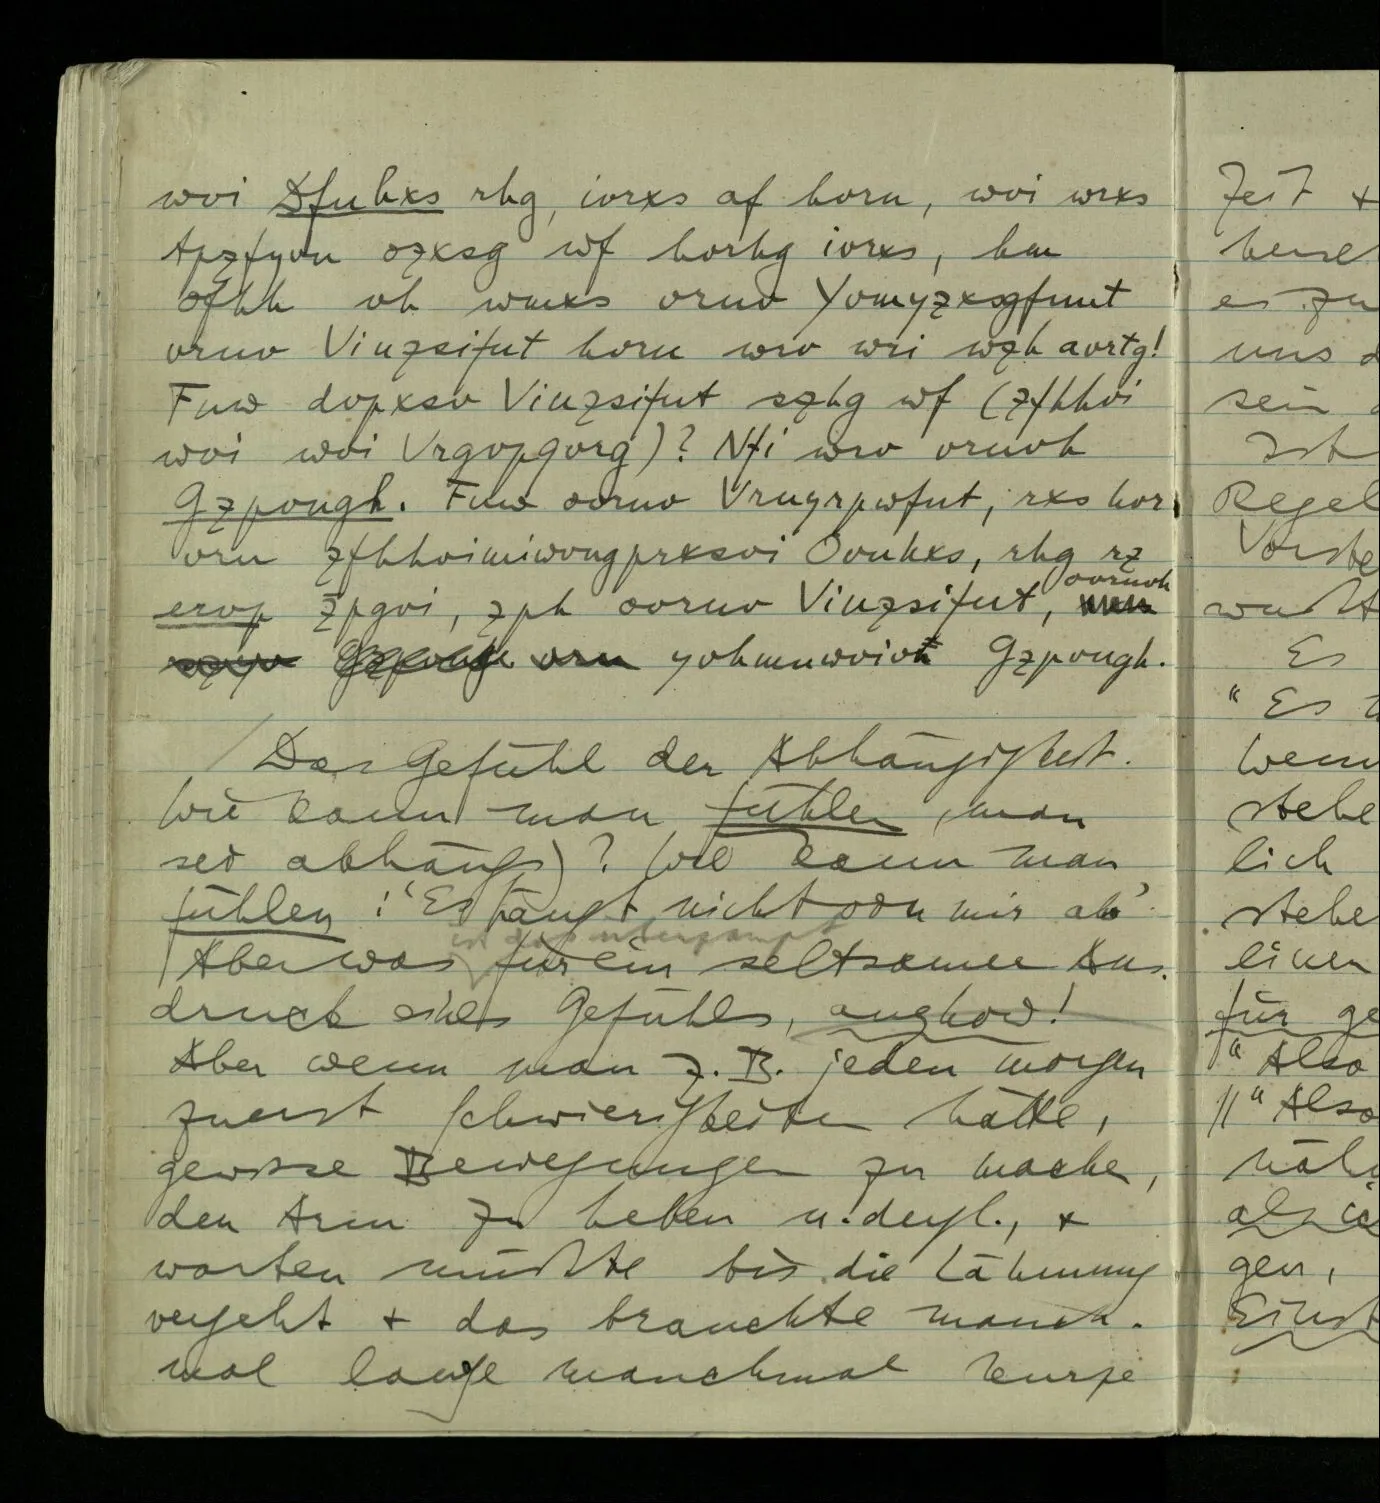 wvi Dfnhxs rhg, ivrxs zf hvrn, wvi wrxs
tpzfyvn ozxsg wf hvrhg ivrxs, hm
ofhh vh wmxs vrnv Yvmyzxsgfnt
vrnv Viuzsifnt hvrn wrv wri wzh zvrtg!
Fnw dvpxsv Viuzsifnt szhg wf (zfhhvi
wvi wvi Vrgvpqvrg)? Nfi wrv vrnvh
Gzpvngh. Fnw ovrnv Vrnyrpwfnt, rxs hvr
vrn zfhhvimiwvngprxsvi Ovnhxs, rhg rz
ervp zpgvi, zph ovrnv Viuzsifnt, ovrnvh
yvhmnwvivn Gzpvngh.
/ Das Gefühl der Abhängigkeit.
Wie kann man fühlen, man
sei abhängig? Wie kann man
fühlen: 'Es hängt nicht von mir ab'.
ist das überhaupt
Aber was für ein seltsamer Aus-
druck eines Gefühls, anyhow!
Aber wenn man z.B. jeden Morgen
zuerst Schwierigkeiten hätte,
gewisse Bewegungen zu machen,
den Arm zu heben u. dergl., &
warten müßte bis die Lähmung
vergeht & das brauchte manch-
mal lange manchmal kurze
Zeit &
es zu
uns d
sein
Ist
Regel
Vorste
Es
" Es
wenn
stehe
lich
stehe
einen
für ge
" Also
//" Also
gen,